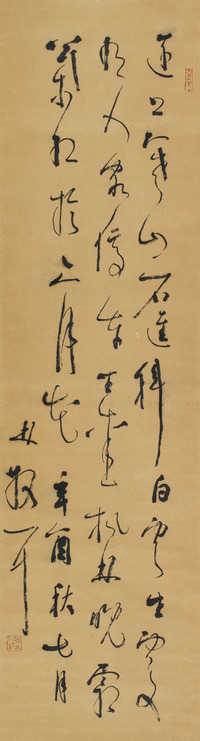 遠上寒山石逕斜白雲生處
有人家停車坐愛楓林晚霜
葉紅於二月花辛酉秋七月
林散耳